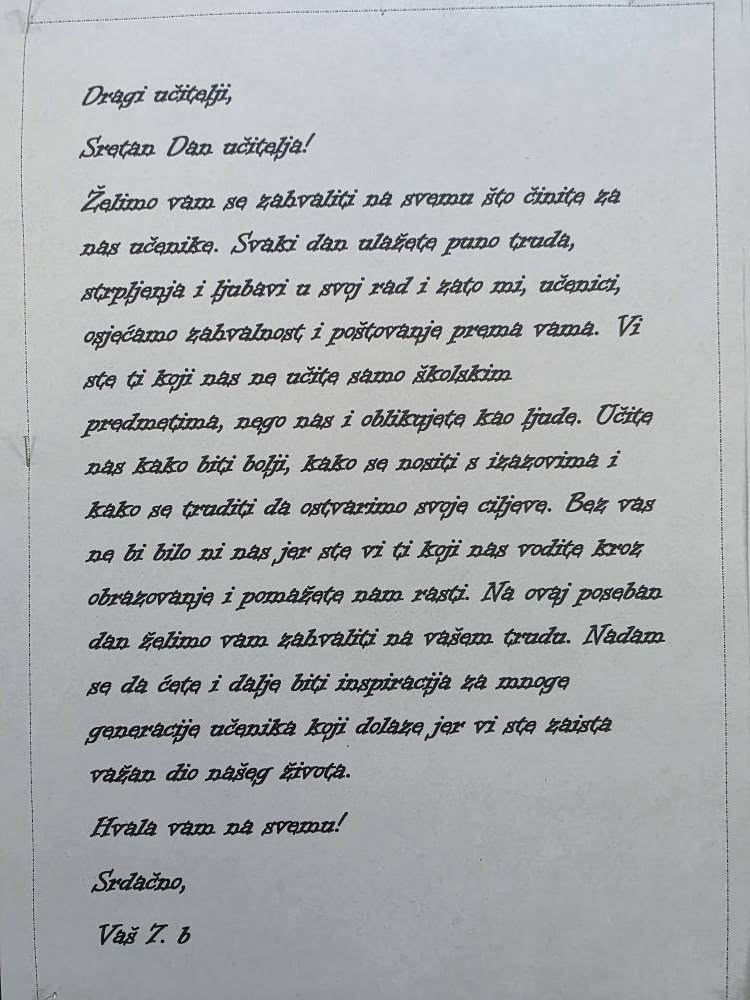 Dragi učitelji,
Sretan Dan učitelja!
Želimo vam se zahvaliti na svemu što činite za
nas učenike. Svaki dan ulažete puno truda,
strpljenja i ljubavi u svoj rad i zato mi, učenici,
osjećamo zahvalnost i poštovanje prema vama. Vi
ste ti koji nas ne učite samo školskim
predmetima, nego nas i oblikujete kao ljude. Učite
nas kako biti bolji, kako se nositi s izazovima i
kako se truditi da ostvarimo svoje ciljeve. Bez vas
ne bi bilo ni nas jer ste vi ti koji nas vodite kroz
obrazovanje i pomažete nam rasti. Na ovaj poseban
dan želimo vam zahvaliti na vašem trudu. Nadam
se da ćete i dalje biti inspiracija za mnoge
generacije učenika koji dolaze jer vi ste zaista
važan dio našeg života.
Hvala vam na svemu!
Srdačno,
Vaš 7. b